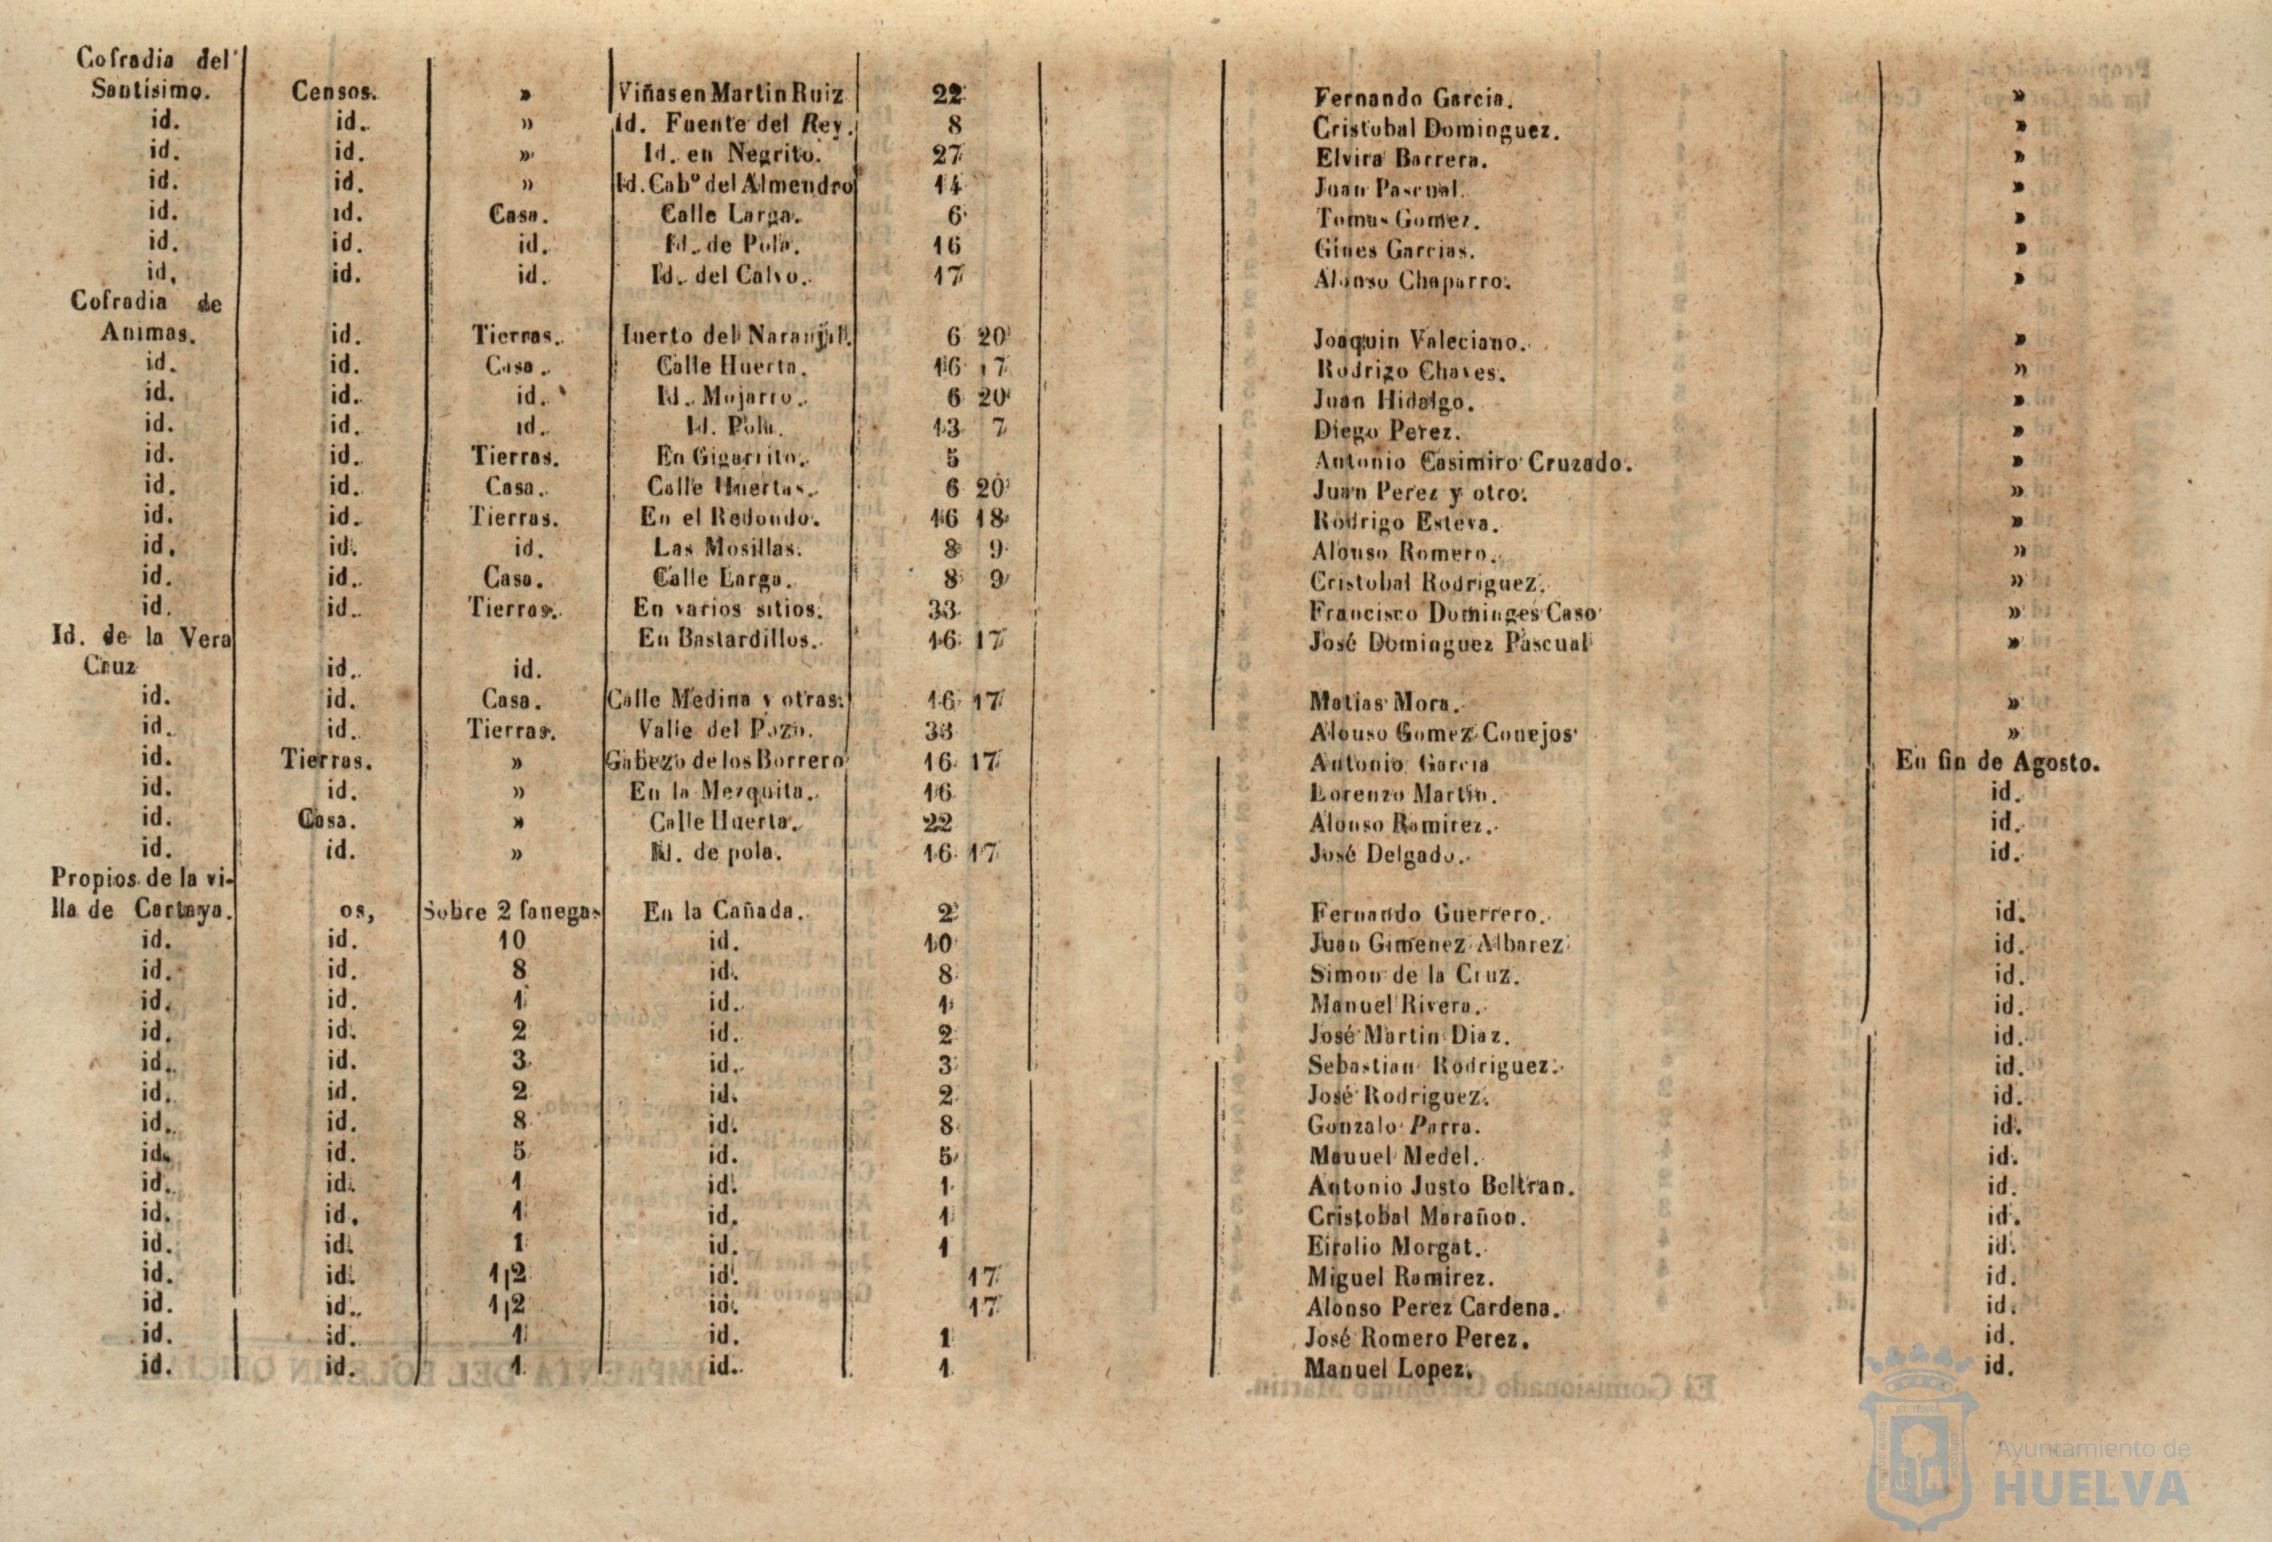 Cofradia del
Santísimo. Censos. » Viñas en Martin Ruiz 22 Fernando Garcia. »
id. id. » Id. Fuente del Rey. 8 Cristobal Dominguez. »
id. id. » Id. en Negrito. 27 Elvira Barrera. »
id. id. » Id. Cabº del Almendro 14 Juan Pascual. »
id. id. Casa. Calle Larga. 6 Tomas Gomez. »
id. id. id. Id. de Pola. 16 Gines Garcias. »
id. id. id. Id. del Calvo. 17 Alonso Chaparro. »
Cofradia de
Animas. id. Tierras. Iuerto del Naranjal. 6 20 Joaquin Valeciano. »
id. id. Casa. Calle Huerta. 16 17 Rodrigo Chaves. »
id. id. id. Id. Mojarro. 6 20 Juan Hidalgo. »
id. id. id. Id. Pola. 13 7 Diego Perez. »
id. id. Tierras. En Gigarrito. 5 Antonio Casimiro Cruzado. »
id. id. Casa. Calle Huertas. 6 20 Juan Perez y otro. »
id. id. Tierras. En el Redondo. 16 18 Rodrigo Esteva. »
id. id. id. Las Mosillas. 8 9 Alonso Romero. »
id. id. Casa. Calle Larga. 8 9 Cristobal Rodriguez. »
id. id. Tierras. En varios sitios. 33 Francisco Dominges Caso »
Id. de la Vera En Bastardillos. 16 17 José Dominguez Pascual »
Cruz id. id.
id. id. Casa. Calle Medina y otras. 16 17 Matias Mora. »
id. id. Tierras. Valle del Pozo. 33 Alonso Gomez Conejos »
id. Tierras. » Gabezo de los Borrero 16 17 Antonio Garcia En fin de Agosto.
id. id. » En la Mezquita. 16 Lorenzo Martin. id.
id. Casa. » Calle Huerta. 22 Alonso Ramirez. id.
id. id. » Id. de pola. 16 17 José Delgado. id.
Propios de la vi-
lla de Cartaya. os, Sobre 2 fanegas En la Cañada. 2 Fernando Guerrero. id.
id. id. 10 id. 10 Juan Gimenez Albarez id.
id. id. 8 id. 8 Simon de la Cruz. id.
id. id. 1 id. 1 Manuel Rivera. id.
id. id. 2 id. 2 José Martin Diaz. id.
id. id. 3 id. 3 Sebastian Rodriguez. id.
id. id. 2 id. 2 José Rodriguez. id.
id. id. 8 id. 8 Gonzalo Parra. id.
id. id. 5 id. 5 Mauuel Medel. id.
id. id. 1 id. 1 Antonio Justo Beltran. id.
id. id. 1 id. 1 Cristobal Marañon. id.
id. id. 1 id. 1 Eiralio Morgat. id.
id. id. 1|2 id. 17 Miguel Ramirez. id.
id. id. 1|2 id. 17 Alonso Perez Cardena. id.
id. id. 1 id. 1 José Romero Perez. id.
id. id. 1 id. 1 Manuel Lopez. id.
Ayuntamiento de
HUELVA